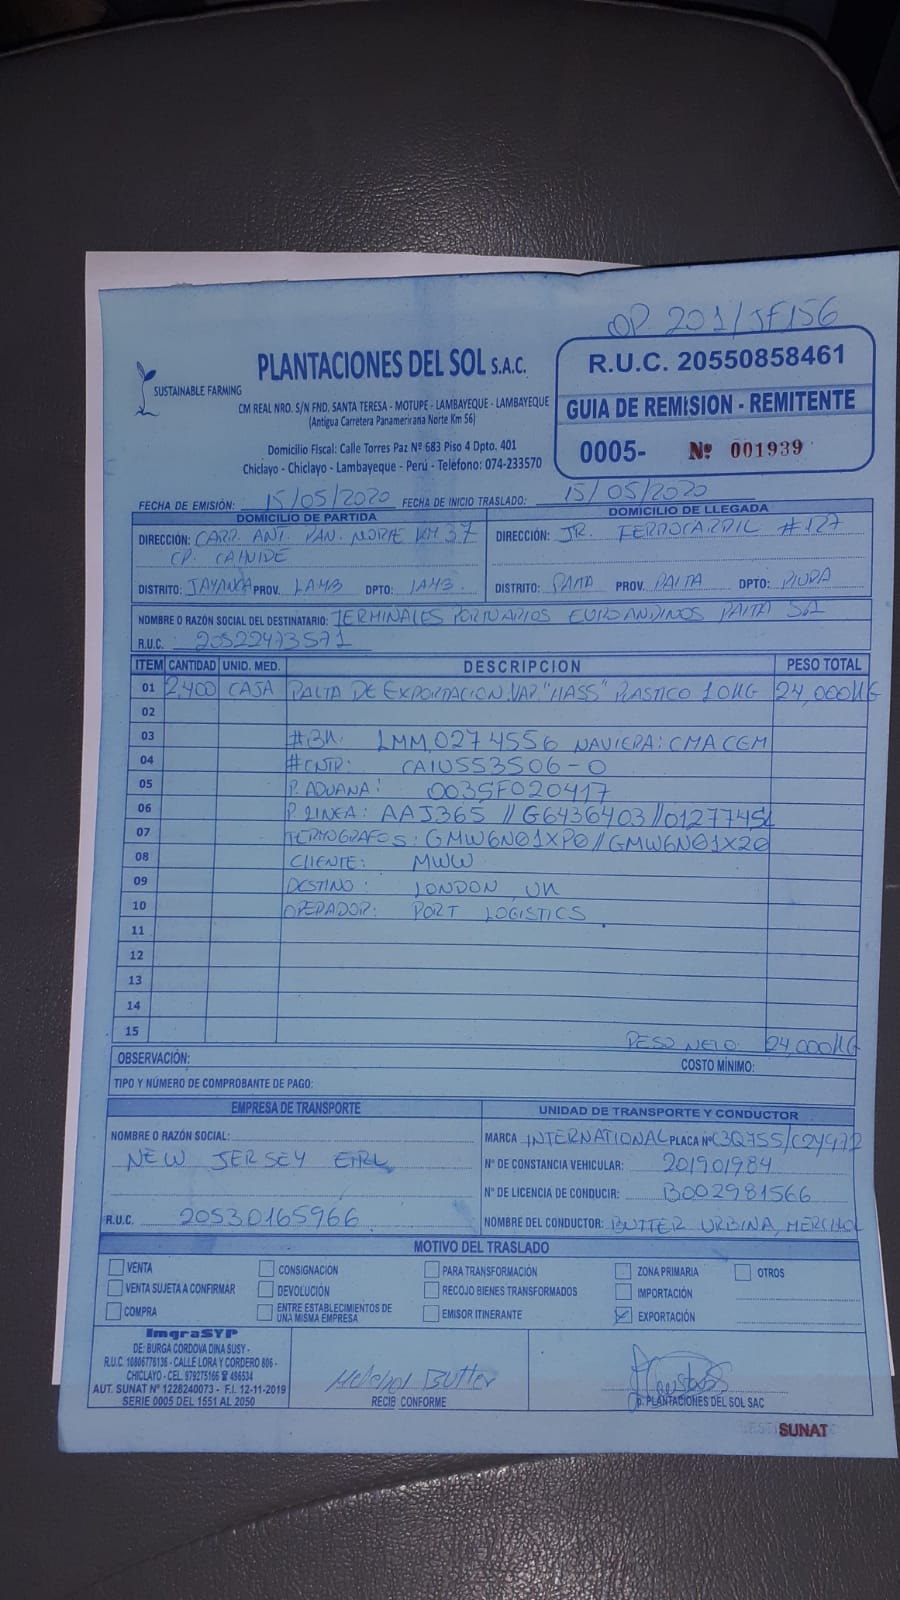 OP 201/JF156
PLANTACIONES DEL SOL S.A.C.
SUSTAINABLE FARMING
CM REAL NRO. S/N FND. SANTA TERESA - MOTUPE - LAMBAYEQUE - LAMBAYEQUE
(Antigua Carretera Panamerirana Norte Km 56)
Domicilio Fiscal: Calle Torres Paz Nº 683 Piso 4 Dpto. 401
Chiclayo - Chiclayo - Lambayeque - Perú - Telefono: 074-233570
R.U.C. 20550858461
GUIA DE REMISION - REMITENTE
0005- Nº 001939
FECHA DE EMISIÓN: 15/05/2020 FECHA DE INICIO TRASLADO: 15/05/2020
DOMICILIO DE PARTIDA
DIRECCIÓN: CARR. ANT. PAN. NORTE KM 37
CP. CAHUIDE
DISTRITO: JAYANCA PROV. LAMB DPTO: LAMB.
DOMICILIO DE LLEGADA
DIRECCIÓN: JR. FERROCARRIL #127
DISTRITO: PAITA PROV. PAITA DPTO: PIURA
NOMBRE O RAZÓN SOCIAL DEL DESTINATARIO: TERMINALES PORTUARIOS EUROANDINOS PAITA SA
R.U.C. 20522473571
ITEM CANTIDAD UNID. MED. DESCRIPCION PESO TOTAL
01 2,400 CAJA PALTA DE EXPORTACION.VAR."HASS" PLASTICO 10KG 24,000KG
02
03 #BK: LMM0274556 NAVIERA: CMA CGM
04 #CNTR: CAIU553506-0
05 P. ADUANA: 003SF020417
06 P. LINEA: AAJ365 // G6436403 //
07 TERMOGRAFOS: GMW6N01XP0 // GMW6N01X20
08 CLIENTE: MWW
09 DESTINO: LONDON, UK
10 OPERADOR: PORT LOGISTICS
11
12
13
14
15 PESO NETO 24,000KG
OBSERVACIÓN: COSTO MÍNIMO:
TIPO Y NÚMERO DE COMPROBANTE DE PAGO:
EMPRESA DE TRANSPORTE
NOMBRE O RAZÓN SOCIAL:
NEW JERSEY EIRL
R.U.C. 20530165966
UNIDAD DE TRANSPORTE Y CONDUCTOR
MARCA INTERNATIONAL PLACA Nº C3Q755/C2Y972
Nº DE CONSTANCIA VEHICULAR: 201901984
Nº DE LICENCIA DE CONDUCIR: B002981566
NOMBRE DEL CONDUCTOR: BUTTER URBINA,
MOTIVO DEL TRASLADO
VENTA CONSIGNACION PARA TRANSFORMACIÓN ZONA PRIMARIA OTROS
VENTA SUJETA A CONFIRMAR DEVOLUCIÓN RECOJO BIENES TRANSFORMADOS IMPORTACIÓN
COMPRA ENTRE ESTABLECIMIENTOS DE UNA MISMA EMPRESA EMISOR ITINERANTE EXPORTACIÓN
ImgraSYP
DE: BURGA CORDOVA DINA SUSY -
R.U.C. 10806776136 - CALLE LORA Y CORDERO 806 -
CHICLAYO - CEL. 979275166 ☎ 496534
AUT. SUNAT Nº 1228240073 - F.I. 12-11-2019
SERIE 0005 DEL 1551 AL 2050
Butter
RECIBI CONFORME
p. PLANTACIONES DEL SOL SAC
SUNAT